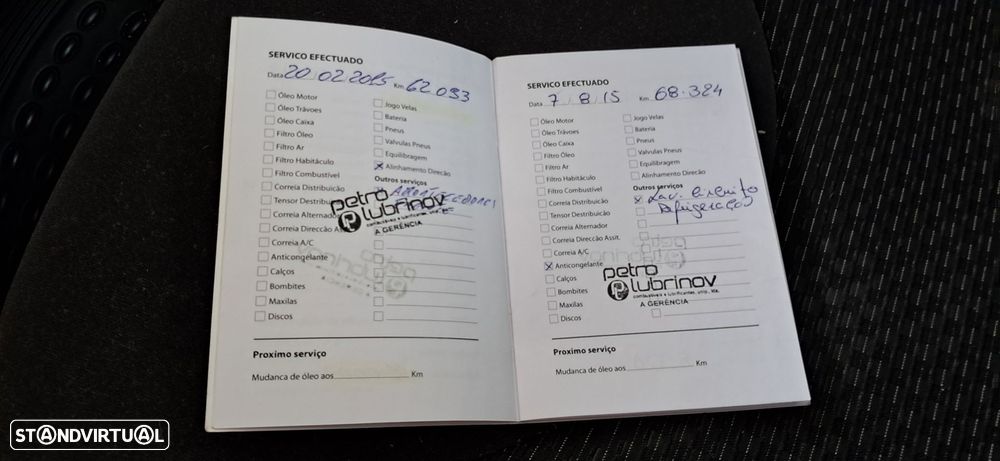 SERVICO EFECTUADO
Data 20 02 2015 Km 62.093
Óleo Motor
Óleo Trávoes
Óleo Caixa
Filtro Óleo
Filtro Ar
Filtro Habitáculo
Filtro Combustível
Correia Distribuicão
Tensor Destribuicão
Correia Alternador
Correia Direccão Assit.
Correia A/C
Anticongelante
Calços
Bombites
Maxilas
Discos
Jogo Velas
Bateria
Pneus
Valvulas Pneus
Equilibragem
x Alinhamento Direcão
Outros serviços
petro
lubrinov
A GERÊNCIA
Proximo serviço
Mudanca de óleo aos Km
SERVICO EFECTUADO
Data 7 / 8 / 15 Km 68.324
Óleo Motor
Óleo Trávoes
Óleo Caixa
Filtro Óleo
Filtro Ar
Filtro Habitáculo
Filtro Combustível
Correia Distribuicão
Tensor Destribuicão
Correia Alternador
Correia Direccão Assit.
Correia A/C
x Anticongelante
Calços
Bombites
Maxilas
Discos
Jogo Velas
Bateria
Pneus
Valvulas Pneus
Equilibragem
Alinhamento Direcão
Outros serviços
x Lav. Circuito
Refrigeração
petro
lubrinov
combustíveis e lubrificantes, unip., lda.
A GERÊNCIA
Proximo serviço
Mudanca de óleo aos Km
STANDVIRTUAL